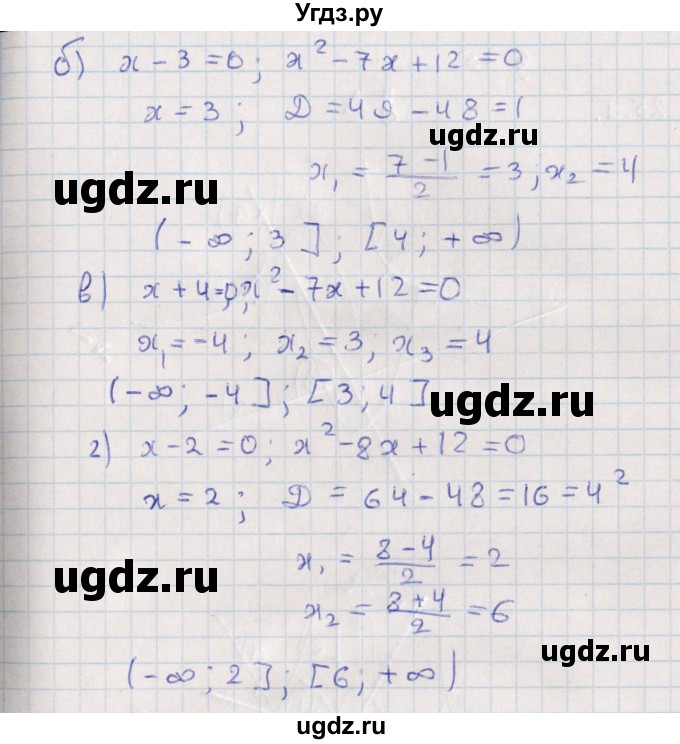 Угдз.ру
б) x - 3 = 0; x² - 7x + 12 = 0
x = 3; Д = 49 - 48 = 1
ugdz.ru
ugdz.ru
x₁ = (7 - 1)/2 = 3; x₂ = 4
(-∞; 3]; [4; +∞)
в) x + 4 = 0; x² - 7x + 12 = 0
x₁ = -4; x₂ = 3; x₃ = 4
(-∞; -4]; [3; 4]
ugdz.ru
г) x - 2 = 0; x² - 8x + 12 = 0
x = 2; Д = 64 - 48 = 16 = 4²
ugdz.ru
x₁ = (8 - 4)/2 = 2
x₂ = (8 + 4)/2 = 6
ugdz.ru
(-∞; 2]; [6; +∞)
ugdz.ru